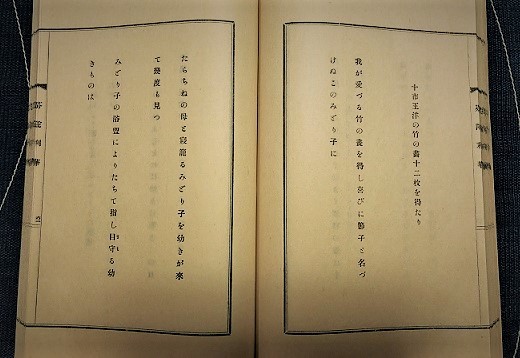 十市王洋の竹の畫十二枚を得たり
我が愛づる竹の畫を得し喜びに節子と名づ
けぬこのみどり子に
たらちねの母と寢籠るみどり子を幼きが來
て幾度も見つ
みどり子の浴盟によりたちて指し目守る幼
きものは